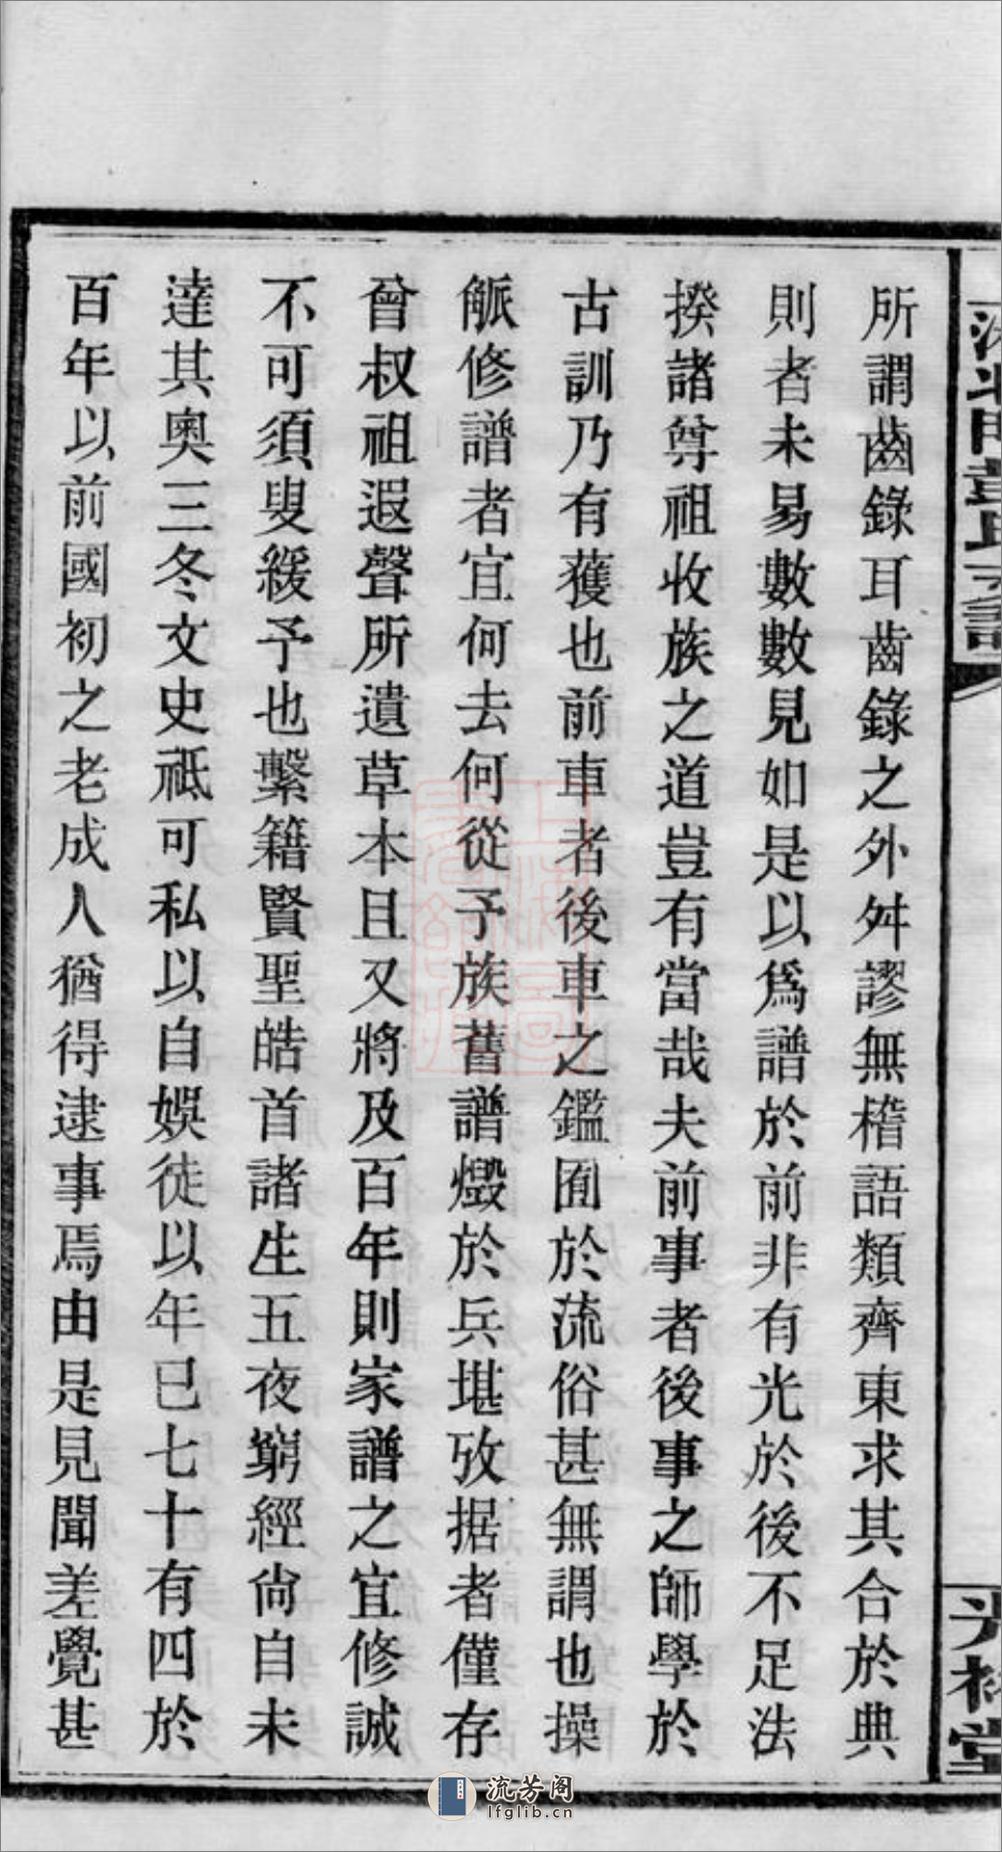 所謂齒錄耳齒錄之外舛謬無稽語類齊東求其合於典
則者未易數數見如是以爲譜於前非有光於後不足法
揆諸尊祖收族之道豈有當哉夫前事者後事之師學於
古訓乃有獲也前車者後車之鑑囿於流俗甚無謂也操
觚修譜者宜何去何從予族舊譜燬於兵堪攷据者僅存
曾叔祖遐聲所遺草本且又將及百年則家譜之宜修誠
不可須叟緩予也繫籍賢聖皓首諸生五夜窮經尙自未
達其奧三冬文史祗可私以自娛徒以年已七十有四於
百年以前國初之老成人猶得逮事焉由是見聞差覺甚
流芳阁
lfglib.cn